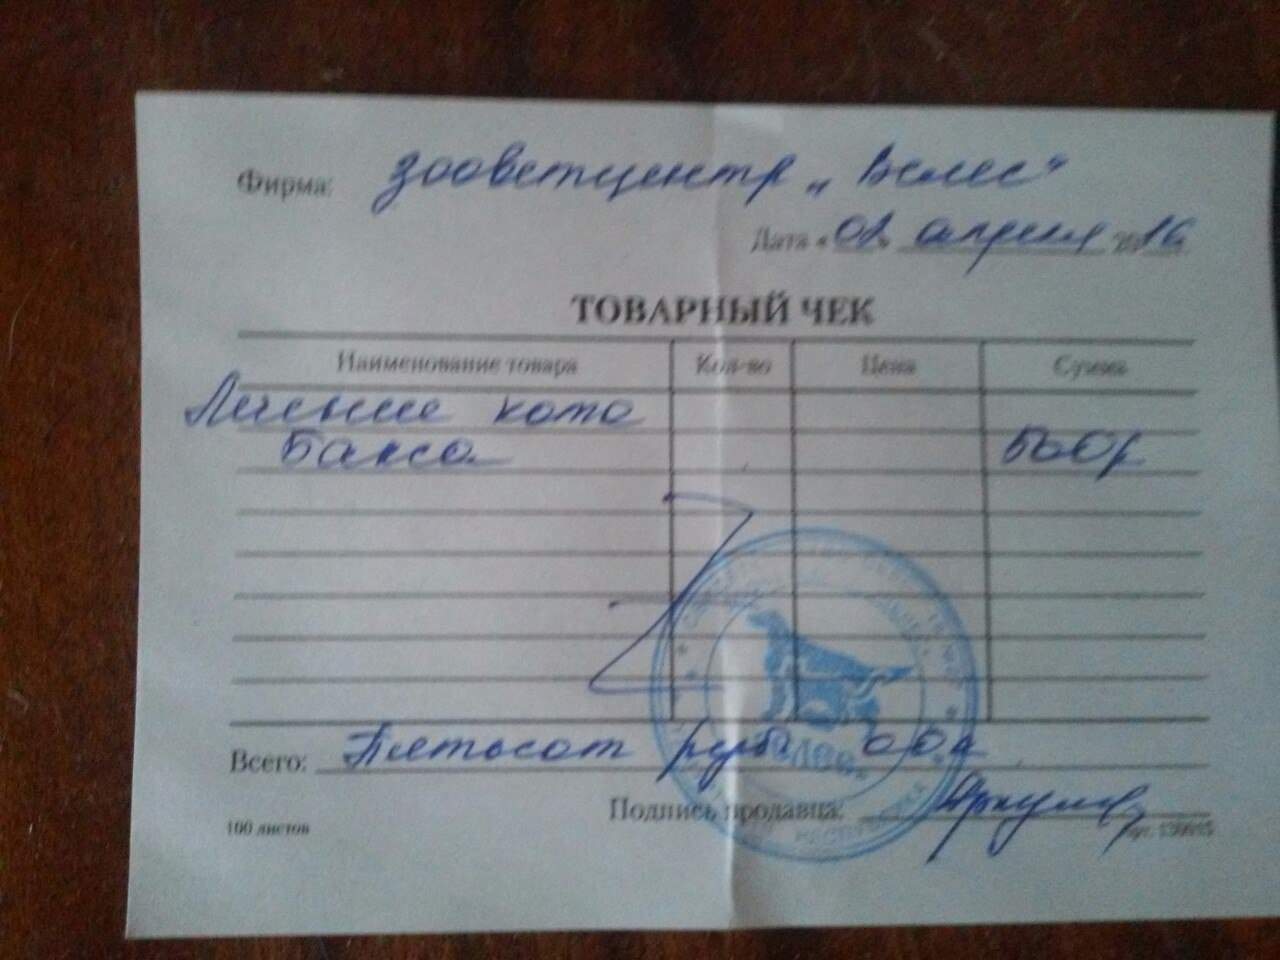 Фирма: Зооветцентр „Велес“
Дата «01» апреля 2016
ТОВАРНЫЙ ЧЕК
Наименование товара Кол-во Цена Сумма
Лечение кота
Бакса 500р
Всего: Пятьсот руб 00к
Велес
Подпись продавца:
100 листов